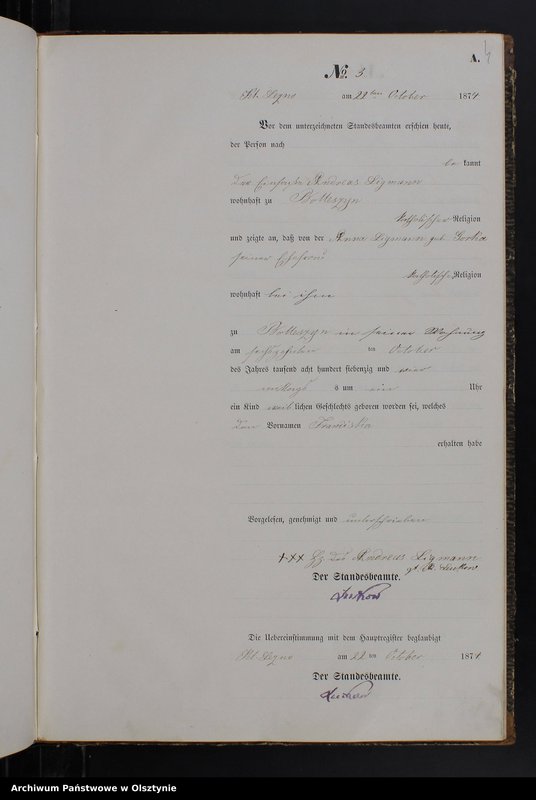 A. 4
No. 3
am 22ten October 1874
Vor dem unterzeichneten Standesbeamten erschien heute,
der Person nach
be kannt
Andreas Ligmann
wohnhaft zu
katholischer Religion
und zeigte an, daß von der Anna Ligmann geb. Gorka
seiner Ehefrau
katholischer Religion
wohnhaft bei ihm
zu in seiner Wohnung
am sechszehnten ten October
des Jahres tausend acht hundert siebenzig und vier
s um ein Uhr
ein Kind weib lichen Geschlechts geboren worden sei, welches
den Vornamen Franziska
erhalten habe
Vorgelesen, genehmigt und unterschrieben
+++ Hz. des Andreas Ligmann
Der Standesbeamte.
Die Uebereinstimmung mit dem Hauptregister beglaubigt
am 22 ten October 1874
Der Standesbeamte.
Archiwum Państwowe w Olsztynie